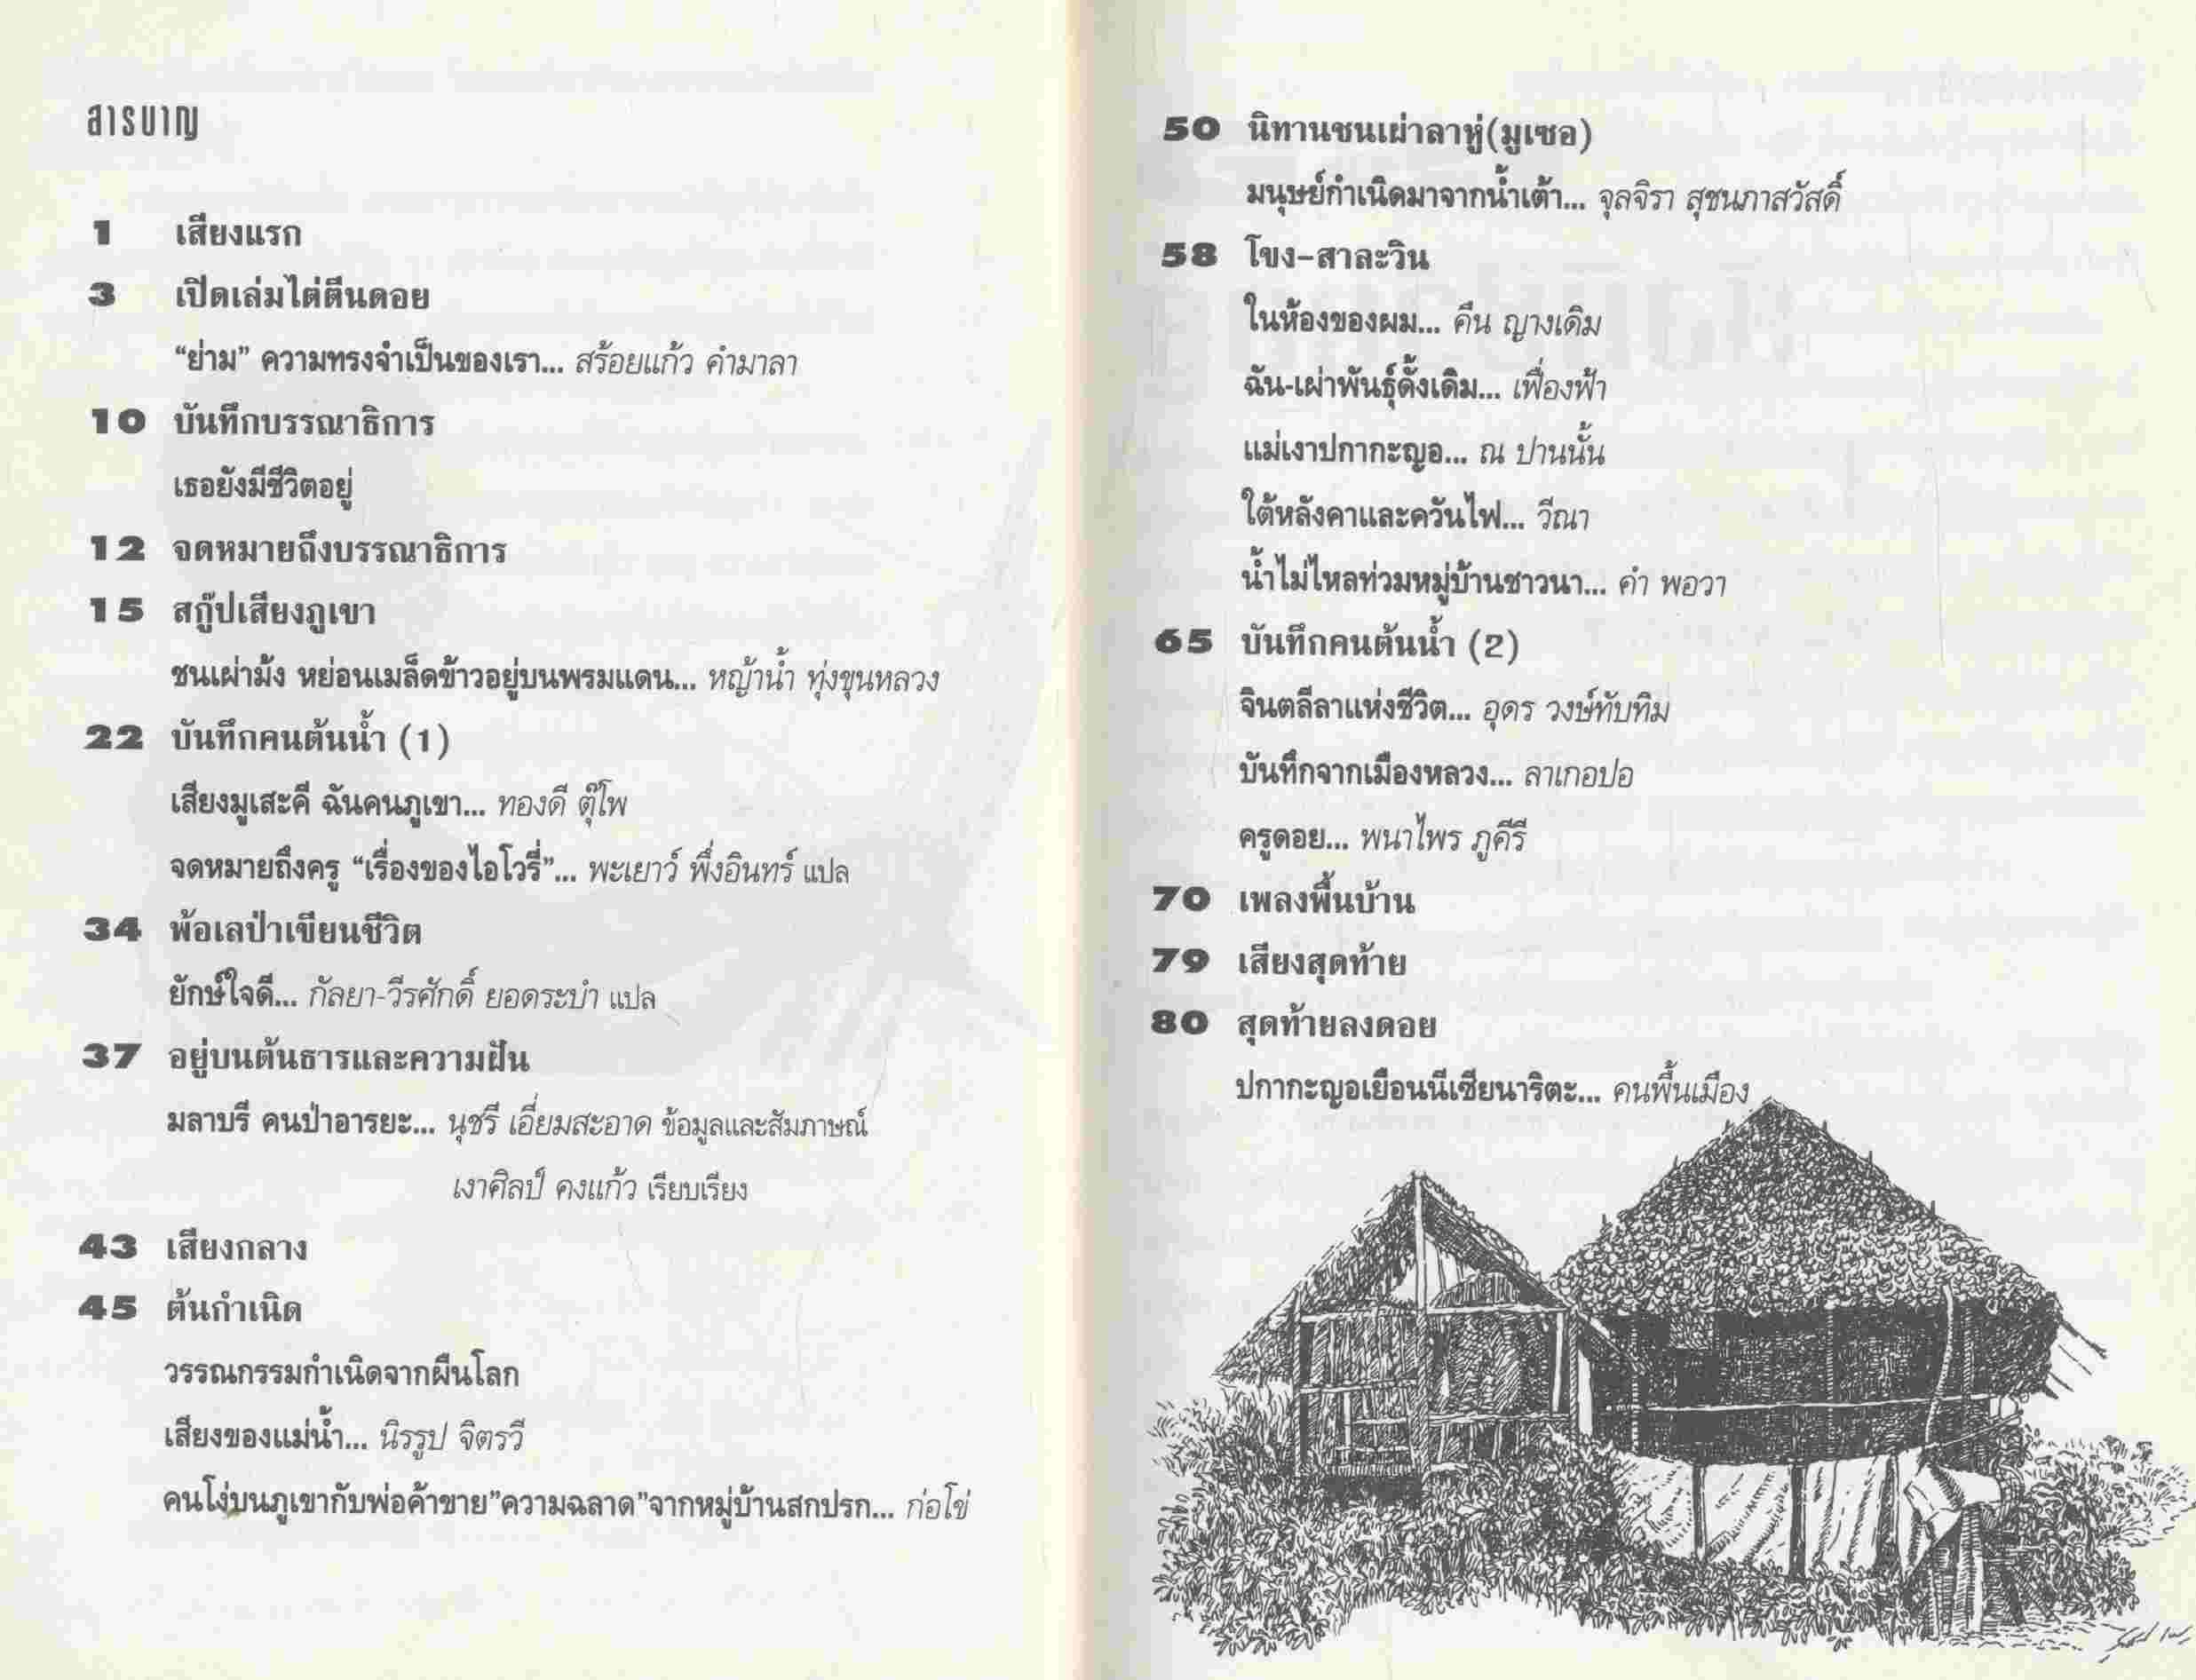 สารบาญ
1 เสียงแรก
3 เปิดเล่มไต่ตีนดอย
“ย่าม” ความทรงจำเป็นของเรา... สร้อยแก้ว คำมาลา
10 บันทึกบรรณาธิการ
เธอยังมีชีวิตอยู่
12 จดหมายถึงบรรณาธิการ
15 สกู๊ปเสียงภูเขา
ชนเผ่าม้ง หย่อนเมล็ดข้าวอยู่บนพรมแดน... หญ้าน้ำ ทุ่งขุนหลวง
22 บันทึกคนต้นน้ำ (1)
เสียงมูเสะคี ฉันคนภูเขา... ทองดี ตุ๊โพ
จดหมายถึงครู “เรื่องของไอโวรี่”... พะเยาว์ พึ่งอินทร์ แปล
34 พ้อเลป่าเขียนชีวิต
ยักษ์ใจดี... กัลยา-วีรศักดิ์ ยอดระบำ แปล
37 อยู่บนต้นธารและความฝัน
มลาบรี คนป่าอารยะ... นุชรี เอี่ยมสะอาด ข้อมูลและสัมภาษณ์
เงาศิลป์ คงแก้ว เรียบเรียง
43 เสียงกลาง
45 ต้นกำเนิด
วรรณกรรมกำเนิดจากผืนโลก
เสียงของแม่น้ำ... นิรรูป จิตรวี
คนโง่บนภูเขากับพ่อค้าขาย”ความฉลาด”จากหมู่บ้านสกปรก... ก่อโข่
50 นิทานชนเผ่าลาหู่(มูเซอ)
มนุษย์กำเนิดมาจากน้ำเต้า... จุลจิรา สุชนภาสวัสดิ์
58 โขง-สาละวิน
ในห้องของผม... คืน ญางเดิม
ฉัน-เผ่าพันธุ์ดั้งเดิม... เฟื่องฟ้า
แม่เงาปกากะญอ... ณ ปานนั้น
ใต้หลังคาและควันไฟ... วีณา
น้ำไม่ไหลท่วมหมู่บ้านชาวนา... คำ พอวา
65 บันทึกคนต้นน้ำ (2)
จินตลีลาแห่งชีวิต... อุดร วงษ์ทับทิม
บันทึกจากเมืองหลวง... ลาเกอปอ
ครูดอย... พนาไพร ภูคีรี
70 เพลงพื้นบ้าน
79 เสียงสุดท้าย
80 สุดท้ายลงดอย
ปกากะญอเยือนนีเซียนาริตะ... คนพื้นเมือง